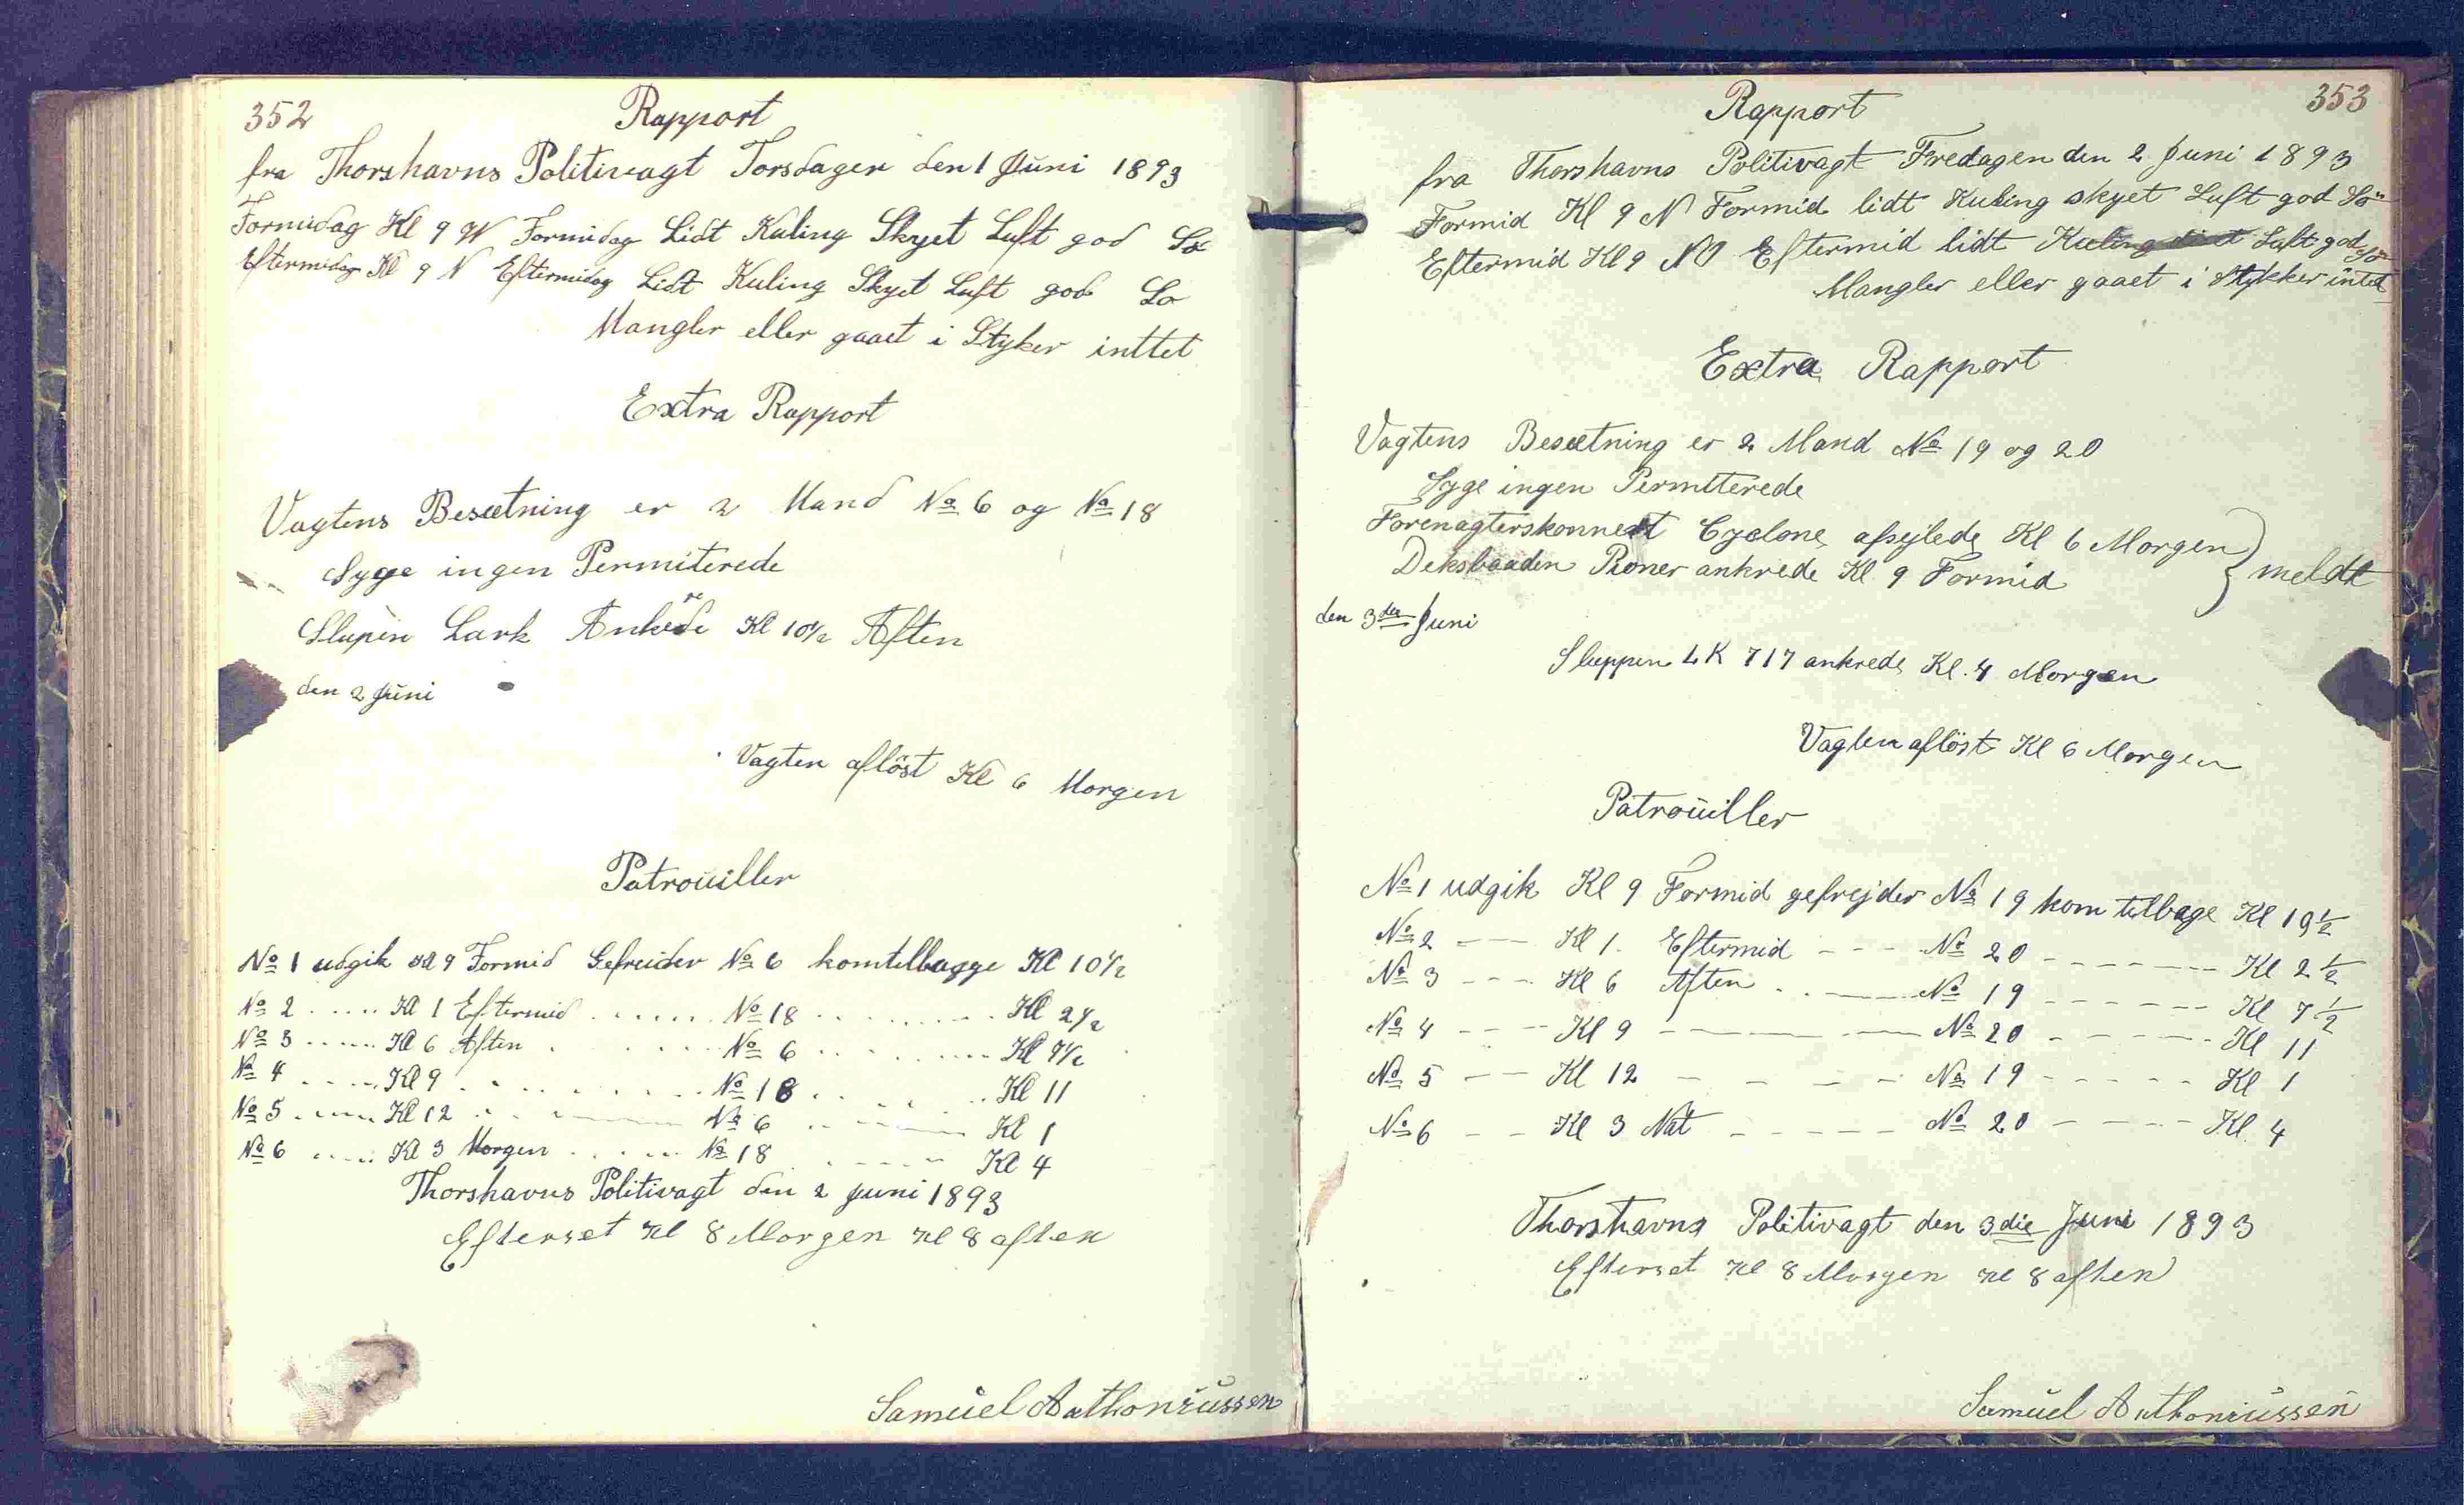 352
Rapport
fra Thorshavns Politivagt Torsdagen den 1 Juni 1893
Formidag Kl 9 W Formidag Lidt Kuling Skyet Luft god Sø
Eftermidag Kl 9 N Eftermidag Lidt Kuling Skyet Luft god So
Mangler eller gaaet i Styker inttet
Extra Rapport
Vagtens Besætning er 2 Mand No 6 og No 18
Syge ingen Permiterede
Slupen Lark Ankrede Kl 10½ Aften
den 2 Juni
Vagten aflöst Kl 6 Morgen
Patrouiller
No 1 udgik Kl 9 Formid Gefreider No 6 komtelbagge Kl 10½
No 2 ..... Kl 1 Eftermid ...... No 18 ........ Kl 2½
No 3 ..... Kl 6 Aften ...... No 6 ........ Kl 7½
No 4 ..... Kl 9 ........ No 18 ..... Kl 11
No 5 ..... Kl 12 ........ No 6 ..... Kl 1
No 6 ..... Kl 3 Morgen ...... No 18 ..... Kl 4
Thorshavns Politivagt den 2 Juni 1893
Efterset Kl 8 Morgen Kl 8 aften
Samuel Anthoniussen
353
Rapport
fra Thorshavns Politivagt Fredagen den 2 Juni 1893
Formid Kl 9 N Formid lidt Kuling skyet Luft god Sö
Eftermid Kl 9 NO Eftermid lidt Kuling Luft god Sö
Mangler eller gaaet i Stykker intet
Extra Rapport
Vagtens Besætning er 2 Mand No 19 og 20
Syge ingen Permitterede
Forenagterskonnert Cyclone afsejlede Kl 6 Morgen
Deksbaaden Pioner ankrede Kl 9 Formid
meldt
den 3die Juni
Sluppen LK 717 ankrede Kl. 4 Morgen
Vagten aflöst Kl 6 Morgen
Patrouiller
No 1 udgik Kl 9 Formid gefrejder No 19 kom telbage Kl 10½
No 2 --- Kl 1. Eftermid --- No 20 ------ Kl 2½
No 3 --- Kl 6 Aften --- No 19 ------ Kl 7½
No 4 --- Kl 9 --- No 20 ------ Kl 11
No 5 --- Kl 12 ---- No 19 ----- Kl 1
No 6 -- Kl 3 Nat ----- No 20 ---- Kl. 4
Thorshavns Politivagt den 3die Juni 1893
Efterset Kl 8 Morgen Kl 8 aften
Samuel Anthoniussen